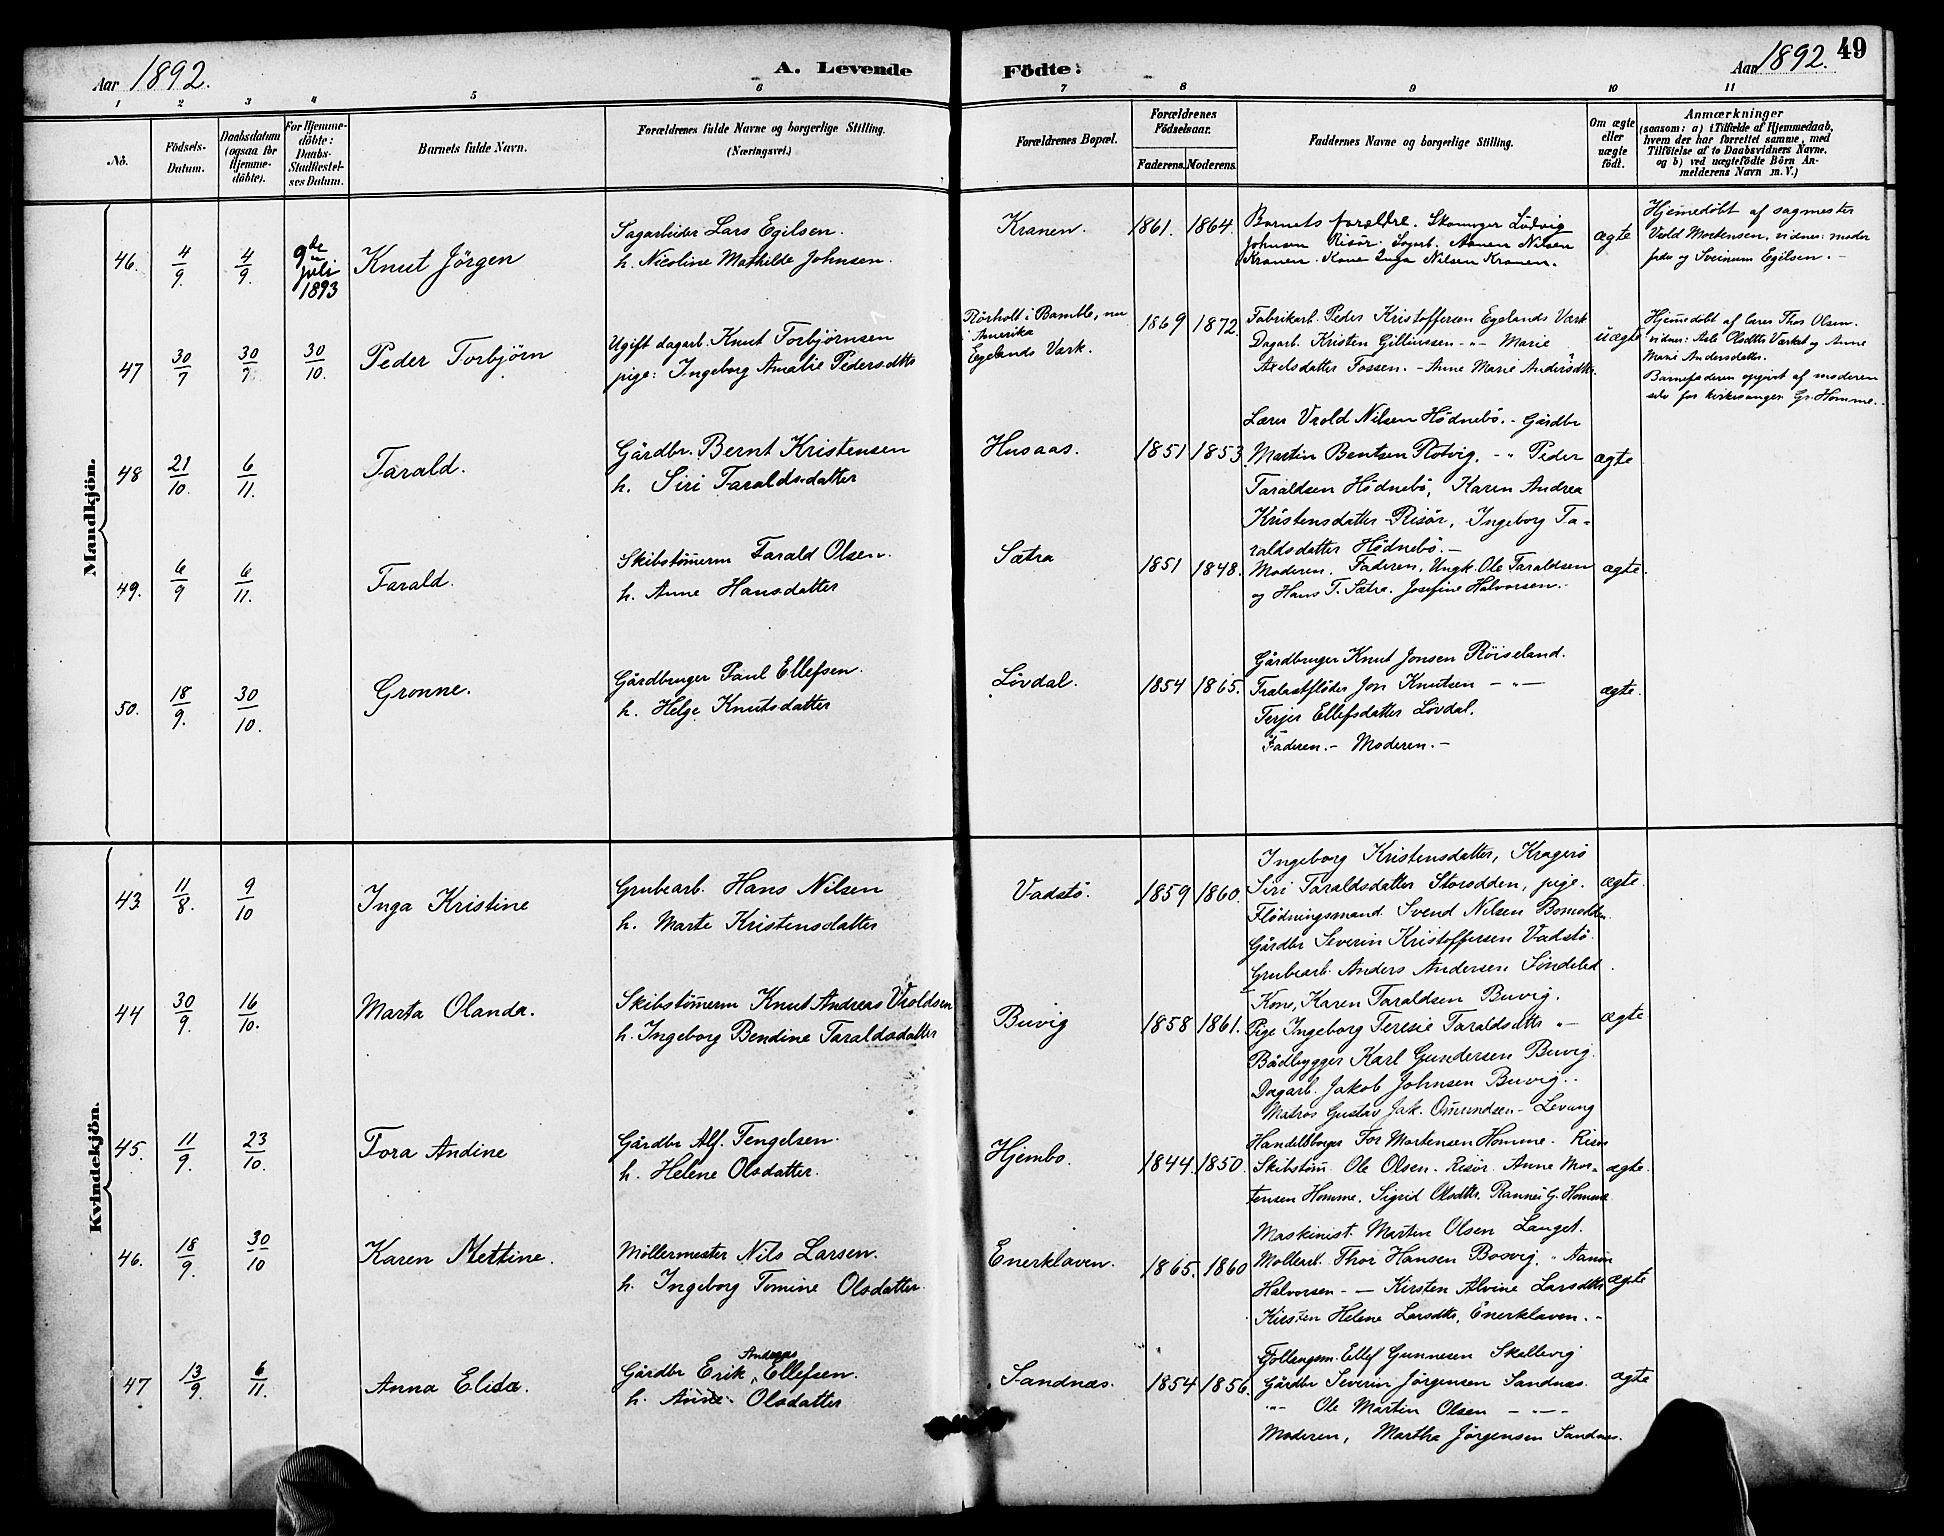 Aar 1892.
A. Levende
Födte:
Aar 1892.
49
1 2 3 4 5 6 7 8 9 10 11
No.
Födsels-Datum.
Daabsdatum (ogsaa for Hjemme-döbte).
For Hjemme-döbte: Daabs-Stadfæstel-ses Datum.
Barnets fulde Navn.
Forældrenes fulde Navne og borgerlige Stilling.
(Næringsvei.)
Forældrenes Bopæl.
Forældrenes Födselsaar.
Faderens. Moderens.
Faddernes Navne og borgerlige Stilling.
Om ægte eller uægte födt.
Anmærkninger
(saasom: a) i Tilfælde af Hjemmedaab,
hvem der har forrettet samme, med
Tilföielse af to Daabsvidners Navne,
og b) ved uægtefödte Börn An-
melderens Navn m. V.)
Mandkjön.
46. 4/9. 4/9. 9de juli 1893 Knut Jörgen
Sagarbeider Lars Egilsen.
h. Nicoline Mathilde Johnsen.
Kranen. 1861. 1864.
Barnets forældre. Skomager Ludvig
Johnsen Risör. Sagarb. Aanen Nilsen
Kranen. Kone Inga Nilsen Kranen.
ægte
Hjemmedöbt af sagmester
Vrold Mortensen, vidner: moder
feder og Sveinum Egilsen.
47 30/7 30/7 30/10. Peder Torbjörn
Ugift dagarb. Knut Torbjörnsen
pige: Ingeborg Amalie Pedersdtts
Rörholt i Bamble, nu
i Amerika
Egelands Værk.
1869 1872.
Fabrikarb. Peder Kristoffersen Egelands Værk
Dagarb. Kristen Gilliussen -"- Marie
Axelsdatter Fossen. - Anne Marie Andersdtt.
uægte
Hjemedöbt af lærer Thos Olsen.
vidner: Asle Olsdtts Værket og Anne
Marie Andersdatter.
Barnefaderen opgivet af moderen
selv for kirkesanger G. Homme.
48 21/10. 6/11. Tarald.
Gårdbr. Bernt Kristensen
h. Siri Taraldsdatter
Husaas. 1851 1853
Lærer Vrold Nilsen Hödnebö. - Gårdbr
Martin Bentsen Rotvig. -"- Peder
Taraldsen Hödnebö, Karen Andrea
Kristensdatter Risör, Ingeborg Ta-
raldsdatter Hödnebö.-
ægte
49. 6/9 6/11. Tarald.
Skibstömerm Tarald Olsen.
h. Anne Hansdatter
Sætra 1851 1848.
Moderen. Faderen, Ungk. Ole Taraldsen
og Hans T. Sætra. Josefine Halvorsen.
ægte.
50. 18/9. 30/10. Gronne.
Gårdbruger Paul Ellefsen.
h. Helge Knutsdatter
Lövdal. 1854 1865.
Gårdbruger Knut Jonsen Röiseland.
Trælastflöder Jon Knutsen -"-
Terjer Ellefsdatter Lövdal.
Faderen.- Moderen.-
ægte.
Kvindekjön.
43. 11/8. 9/10 Inga Kristine
Grubearb. Hans Nilsen
h. Marte Kristensdatter
Vadstö. 1859 1860.
Ingeborg Kristensdatter, Kragerö
Siri Taraldsdatter Storodden, pige.
Flödningsmand. Svend Nilsen Bomodden.
Gårdbr Severin Kristoffersen Vadstö.
Grubearb. Anders Andersen Söndeled.
ægte.
44 30/9. 16/10. Marta Olanda.
Skibstömerm Knut Andreas Vroldsen
h. Ingeborg Bendine Taraldsdatter
Buvig 1858 1861.
Kone, Karen Taraldsen Buvig.
Pige Ingeborg Teresie Taraldsdtts "-
Bådbygger Karl Gundersen Buvig.
Dagarb. Jakob Johnsen Buvig.
Matros Gustav Jak. Omundsen - Levang
ægte
45. 11/9. 23/10. Tora Andine
Gårdbr Alf. Tengelsen.
h. Helene Olsdatter.
Hjembo. 1844. 1850.
Handelsborger Tor Mortensen Homme. Risör
Skibstöm. Ole Olsen. Risör. Anne Mor-
tensen Homme. Sigrid Olsdtts. Rannei G. Homme
ægte.
46. 18/9. 30/10 Karen Mettine.
Möllermester Nils Larsen.
h. Ingeborg Tomine Olsdatter.
Enerklaven. 1865. 1860
Maskinist. Martin Olsen Langet.
Möllearb. Thor Hansen Bosvig. " Aanon
Halvorsen -- Kirsten Alvine Larsdtts
Kirsten Helene Larsdtts, Enerklaven.-
ægte
47 13/9. 6/11. Anna Elida.
Andreas
Gårdbr Erik Ellefsen.
h. Anne Olsdatter
Sandnæs. 1854 1856.
Ellef Gunnesen Skallevig
Gårdbr Severin Jörgensen Sandnæs.
"- Ole Martin Olsen -"-
Moderen, Martha Jörgensen Sandnæs.
ægte